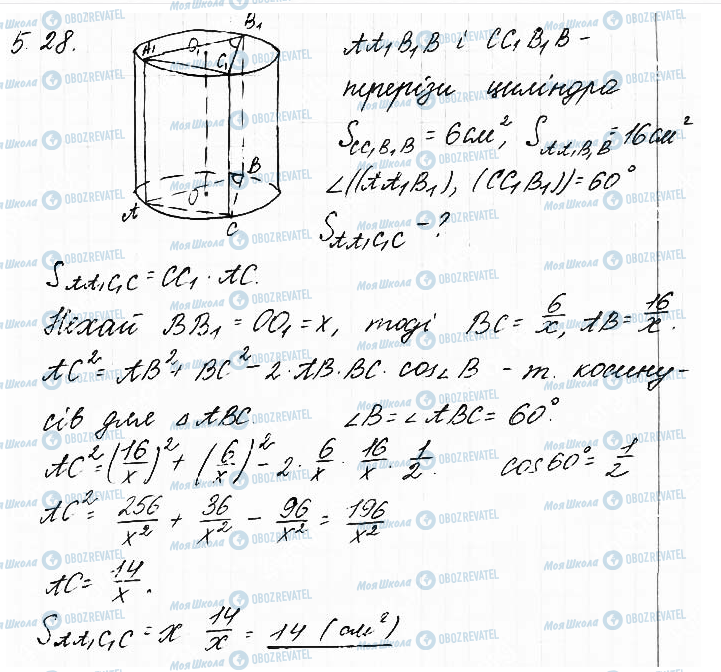 5.28.
B₁
A₁ O₁ C₁
B
O
A
C
AA₁B₁B і CC₁B₁B –
перерізи циліндра
S_CC₁B₁B = 6см², S_AA₁B₁B = 16см²
∠((AA₁B₁), (CC₁B₁)) = 60°
S_AA₁C₁C – ?
S_AA₁C₁C = CC₁ · AC.
Нехай BB₁ = OO₁ = x, тоді BC = 6/x, AB = 16/x.
AC² = AB² + BC² – 2 · AB · BC · cos∠B – т. косину-
сів для △ABC. ∠B = ∠ABC = 60°.
AC² = (16/x)² + (6/x)² – 2 · 6/x · 16/x · 1/2. cos60° = 1/2
AC² = 256/x² + 36/x² – 96/x² = 196/x²
AC = 14/x.
S_AA₁C₁C = x 14/x = 14 (см²)
МояШкола OBOZREVATEL